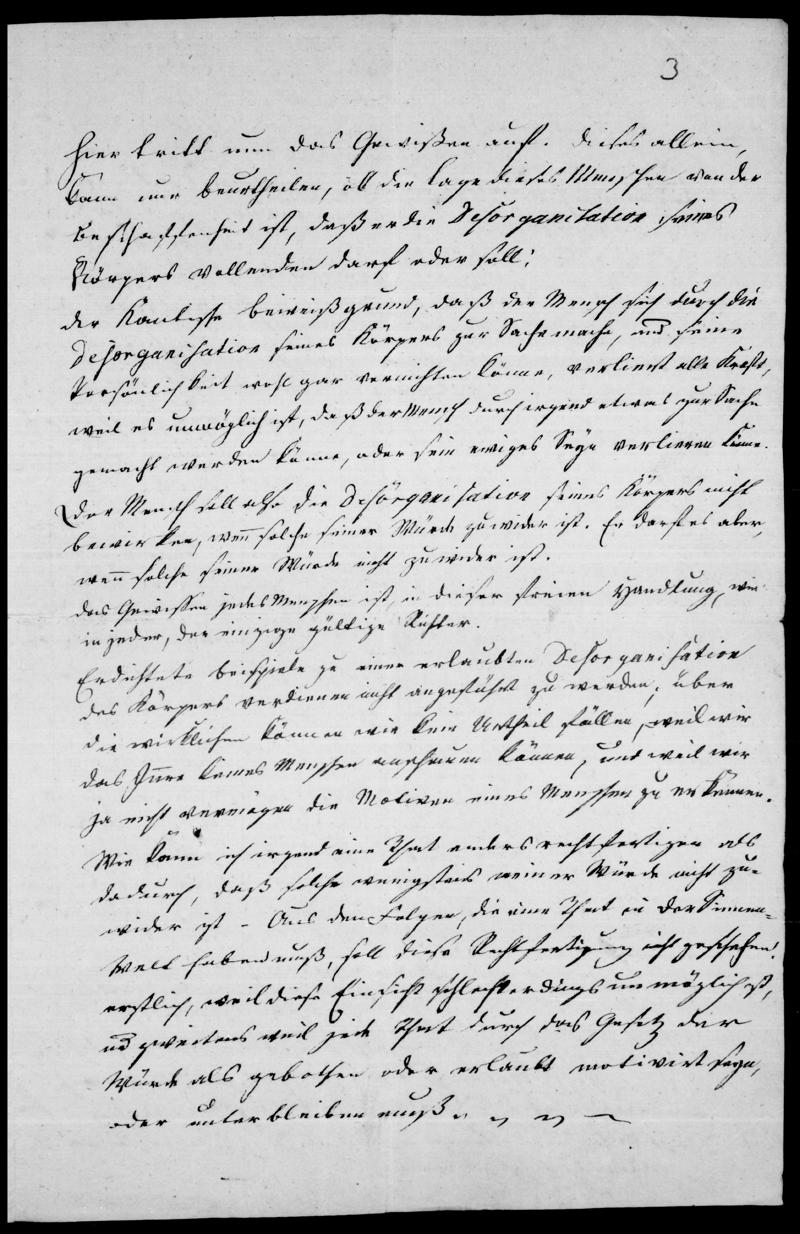 3
Hier tritt nun das Gewißen auf. dieses allein,
kann nur beurtheilen, ob die Lage dieses Menschen von der
Beschaffenheit ist, daß er die Desorganisation seines
Körpers vollenden darf oder soll;
der Kantische beweißgrund, daß der Mensch sich durch die
Desorganisation seines Körpers zur Sache mache, und seine
Persönlichkeit wohl gar vernichten könne, verliert alle Kraft,
weil es unmöglich ist, daß der Mensch durch irgend etwas zur Sache
gemacht werden könne, oder sein ewiges Seyn verlieren könne.
Der Mensch soll also die Desorganisation seines Körpers nicht
bewirken, wenn solche seiner Würde zuwider ist. Er darf es aber,
wenn solche seiner Würde nicht zuwider ist.
das Gewissen jedes Menschen ist, in dieser freien Handlung, wie
in jeder, der einzige gültige Richter.
Erdichtete beispiele zu einer erlaubten Desorganisation
des Körpers verdienen nicht angeführt zu werden; über
die wirklichen können wir kein Urtheil fällen, weil wir
das Innre keines Menschen anschauen können, und weil wir
ja nicht vermögen die Motiven eines Menschen zu erkennen.
Wie kann ich irgend eine That anders rechtfertigen als
dadurch, daß solche wenigstens meiner Würde nicht zu-
wider ist - Aus den Folgen, die eine That in der Sinnen-
Welt haben muß, soll diese Rechtfertigung nicht geschehen!
erstlich, weil diese Einsicht schlechterdings unmöglich ist,
und zweitens weil jede That durch das Gesetz der
Würde als gebothen oder erlaubt motivirt seyn,
oder unterbleiben muß.